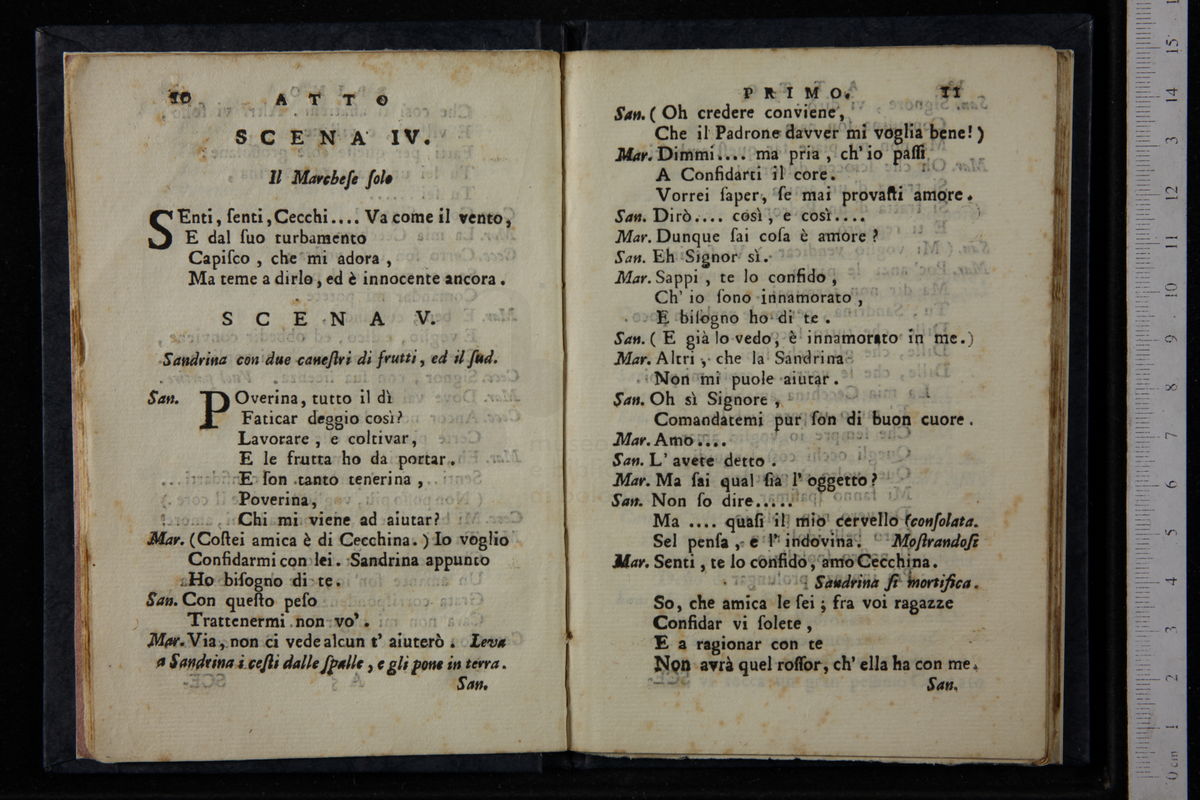 10 ATTO
SCENA IV.
Il Marcheſe ſolo
SEnti, ſenti, Cecchi.... Va come il vento,
E dal ſuo turbamento
Capiſco, che mi adora,
Ma teme a dirlo, ed è innocente ancora.
SCENA V.
Sandrina con due caneſtri di frutti, ed il ſud.
San. POverina, tutto il dì
Faticar deggio così?
Lavorare, e coltivar,
E le frutta ho da portar.
E ſon tanto tenerina,
Poverina,
Chi mi viene ad aiutar?
Mar. (Coſtei amica è di Cecchina.) Io voglio
Confidarmi con lei. Sandrina appunto
Ho biſogno di te.
San. Con queſto peſo
Trattenermi non vo'.
Mar. Via, non ci vede alcun t' aiuterò. Leva
a Sandrina i ceſti dalle ſpalle, e gli pone in terra.
San.
PRIMO. 11
San. (Oh credere conviene,
Che il Padrone davver mi voglia bene!)
Mar. Dimmi.... ma pria, ch' io paſſi
A Confidarti il core.
Vorrei ſaper, ſe mai provaſti amore.
San. Dirò.... così, e così....
Mar. Dunque ſai coſa è amore?
San. Eh Signor sì.
Mar. Sappi, te lo confido,
Ch' io ſono innamorato,
E biſogno ho di te.
San. (E già lo vedo, è innamorato in me.)
Mar. Altri, che la Sandrina
Non mi puole aiutar.
San. Oh sì Signore,
Comandatemi pur ſon di buon cuore.
Mar. Amo....
San. L' avete detto.
Mar. Ma ſai qual ſia l' oggetto?
San. Non ſo dire.....
Ma .... quaſi il mio cervello (conſolata.
Sel penſa, e l' indovina. Moſtrandoſi
Mar. Senti, te lo confido, amo Cecchina.
Sandrina ſi mortifica.
So, che amica le ſei; fra voi ragazze
Confidar vi ſolete,
E a ragionar con te
Non avrà quel roſſor, ch' ella ha con me.
San.
15
14
13
12
11
10
9
8
7
6
5
4
3
2
1
0 cm